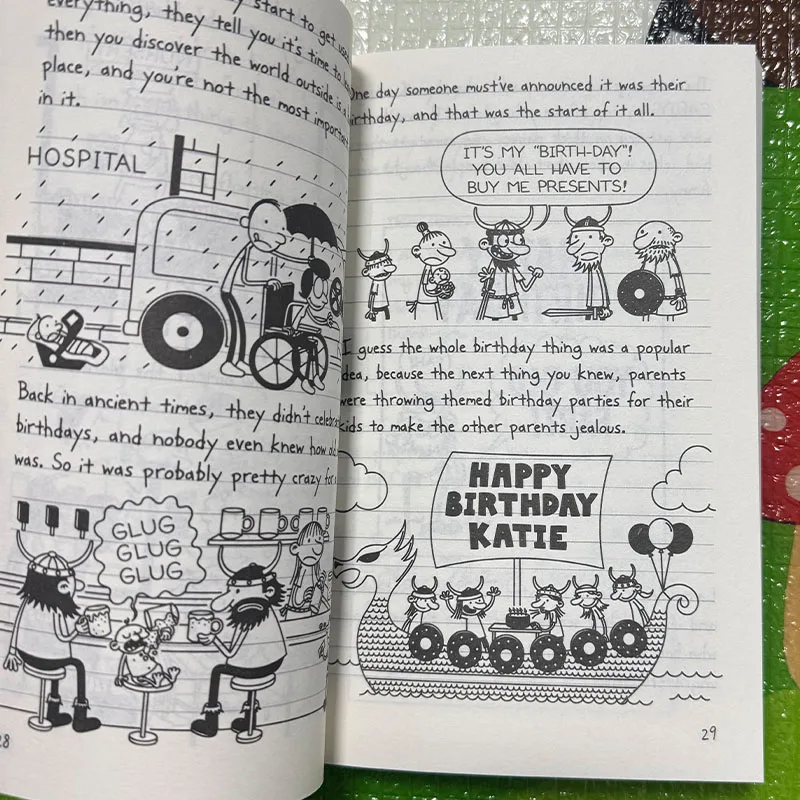 everything, they tell you it's time to
then you discover the world outside is a
place, and you're not the most important
in it.
HOSPITAL
Back in ancient times, they didn't
birthdays, and nobody even knew how old
was. So it was probably pretty crazy for
GLUG
GLUG
GLUG
28
One day someone must've announced it was their
birthday, and that was the start of it all.
IT'S MY "BIRTH-DAY"!
YOU ALL HAVE TO
BUY ME PRESENTS!
I guess the whole birthday thing was a popular
idea, because the next thing you knew, parents
were throwing themed birthday parties for their
kids to make the other parents jealous.
HAPPY
BIRTHDAY
KATIE
29